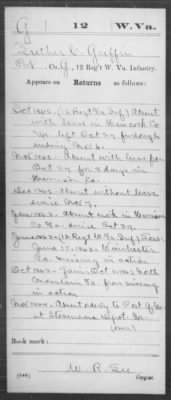 G | 12 | W. Va.
Luther C. Griffin
Pvt., Co. G, 12 Reg't W. Va. Infantry.
Appears on
Returns as follows:
Oct 1862 (12 Regt Va Inf) Absent
with leave in Hancock Co
Va. left Oct 29 furlough
ending Nov 6.
Nov 1862 Absent with leave from
Oct 29 for 8 days in
Co.
Dec 1862 Absent without leave
since Nov 7.
Jan 1863 Absent sick in
Co Va. since Oct 29.
June 1863 (12 Regt W Va Inf) Loss
June 15, 1863 Winchester
Va. missing in action
Oct 1863 Gain: Oct 1863 North
Mountain Va from missing
in action
Nov 1864 Absent
at Stevenson Depot Va.
(over)
Book mark:
W. R. Lee
(546) Copyist.